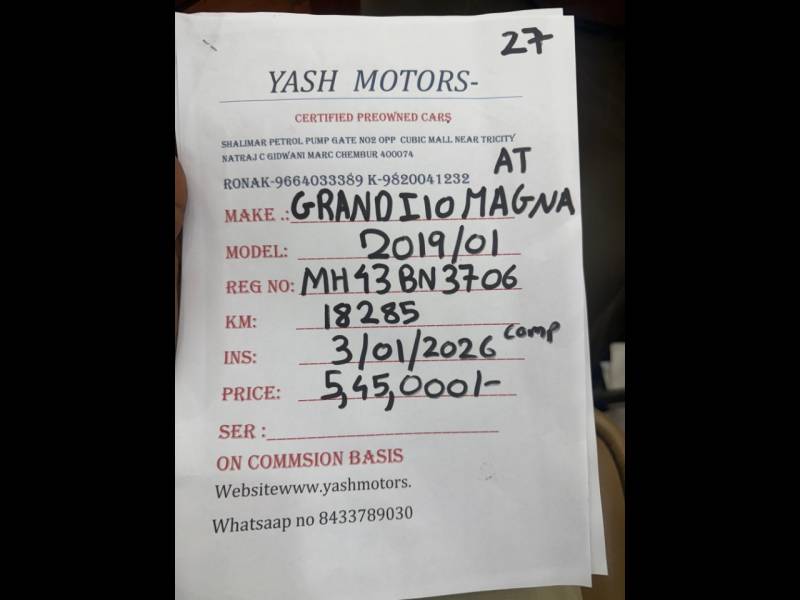 27
YASH MOTORS-
CERTIFIED PREOWNED CARS
SHALIMAR PETROL PUMP GATE NO2 OPP CUBIC MALL NEAR TRICITY
NATRAJ C GIDWANI MARC CHEMBUR 400074
AT
RONAK-9664033389 K-9820041232
MAKE .: GRAND I10 MAGNA
MODEL: 2019/01
REG NO: MH43BN3706
KM: 18285
INS: 3/01/2026 comp
PRICE: 5,45,000/-
SER :
ON COMMSION BASIS
Websitewww.yashmotors.
Whatsaap no 8433789030